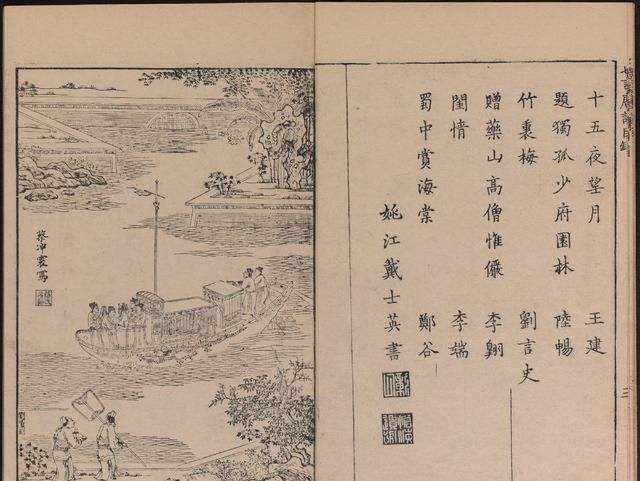 十五夜望月 王建
題獨孤少府園林 陸暢
竹裏梅 劉言史
贈藥山高僧惟儼 李翱
閨情 李端
蜀中賞海棠 鄭谷
姚江戴士英書
蔡冲寰寫